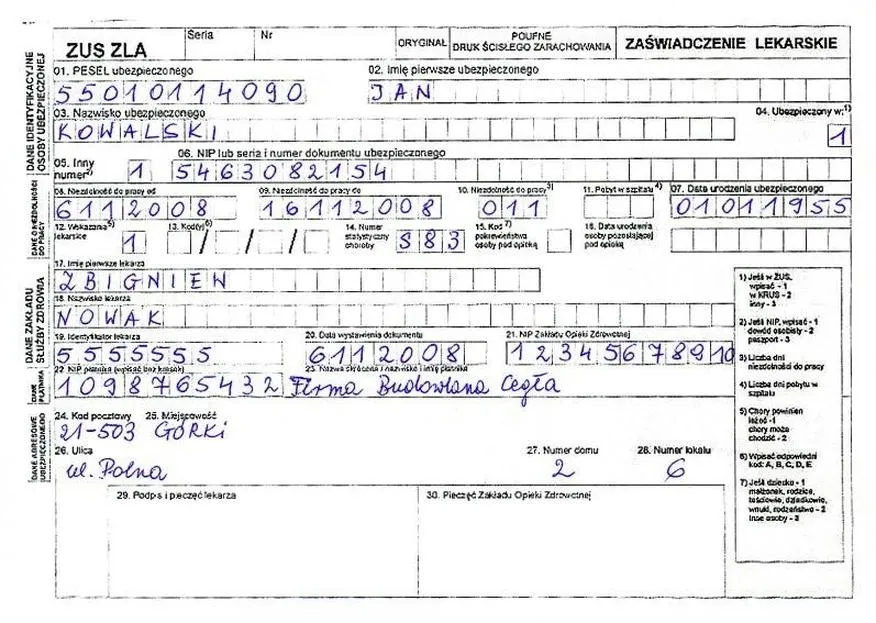 ZUS ZLA
Seria
Nr
ORYGINAŁ
POUFNE
DRUK ŚCISŁEGO ZARACHOWANIA
ZAŚWIADCZENIE LEKARSKIE
DANE IDENTYFIKACYJNE
OSOBY UBEZPIECZONEJ
01. PESEL ubezpieczonego
02. Imię pierwsze ubezpieczonego
55010114090
JAN
03. Nazwisko ubezpieczonego
04. Ubezpieczony w:1)
KOWALSKI
1
05. Inny
numer2)
1
06. NIP lub seria i numer dokumentu ubezpieczonego
5463082154
DANE O NIEZDOLNOŚCI
DO PRACY
08. Niezdolność do pracy od
09. Niezdolność do pracy do
10. Niezdolność do pracy3)
11. Pobyt w szpitalu4)
07. Data urodzenia ubezpieczonego
6112008
16112008
011
01011955
12. Wskazania5)
lekarskie
1
13. Kod(y)6)
/ / /
14. Numer
statystyczny
choroby
S83
15. Kod7)
pokrewieństwa
osoby pod opieką
16. Data urodzenia
osoby pozostającej
pod opieką
DANE ZAKŁADU
SŁUŻBY ZDROWIA
17. Imię pierwsze lekarza
ZBIGNIEW
18. Nazwisko lekarza
NOWAK
19. Identyfikator lekarza
20. Data wystawienia dokumentu
21. NIP Zakładu Opieki Zdrowotnej
5555555
6112008
12345678910
DANE
PŁATNIKA
22. NIP płatnika (wpisać bez kresek)
23. Nazwa skrócona / nazwisko i imię płatnika
1098765432
Firma Budowlana Cegła
DANE ADRESOWE
UBEZPIECZONEGO
24. Kod pocztowy
25. Miejscowość
21-503
GÓRKI
26. Ulica
27. Numer domu
28. Numer lokalu
ul. Polna
2
6
29. Podpis i pieczęć lekarza
30. Pieczęć Zakładu Opieki Zdrowotnej
1) Jeśli w ZUS,
wpisać - 1
w KRUS - 2
inny - 3
2) Jeśli NIP, wpisać - 1
dowód osobisty - 2
paszport - 3
3) Liczba dni
niezdolności do pracy
4) Liczba dni pobytu w
szpitalu
5) Chory powinien
leżeć -1
chory może
chodzić - 2
6) Wpisać odpowiedni
kod: A, B, C, D, E
7) Jeśli dziecko - 1
małżonek, rodzice,
teściowie, dziadkowie,
wnuki, rodzeństwo - 2
inne osoby - 3